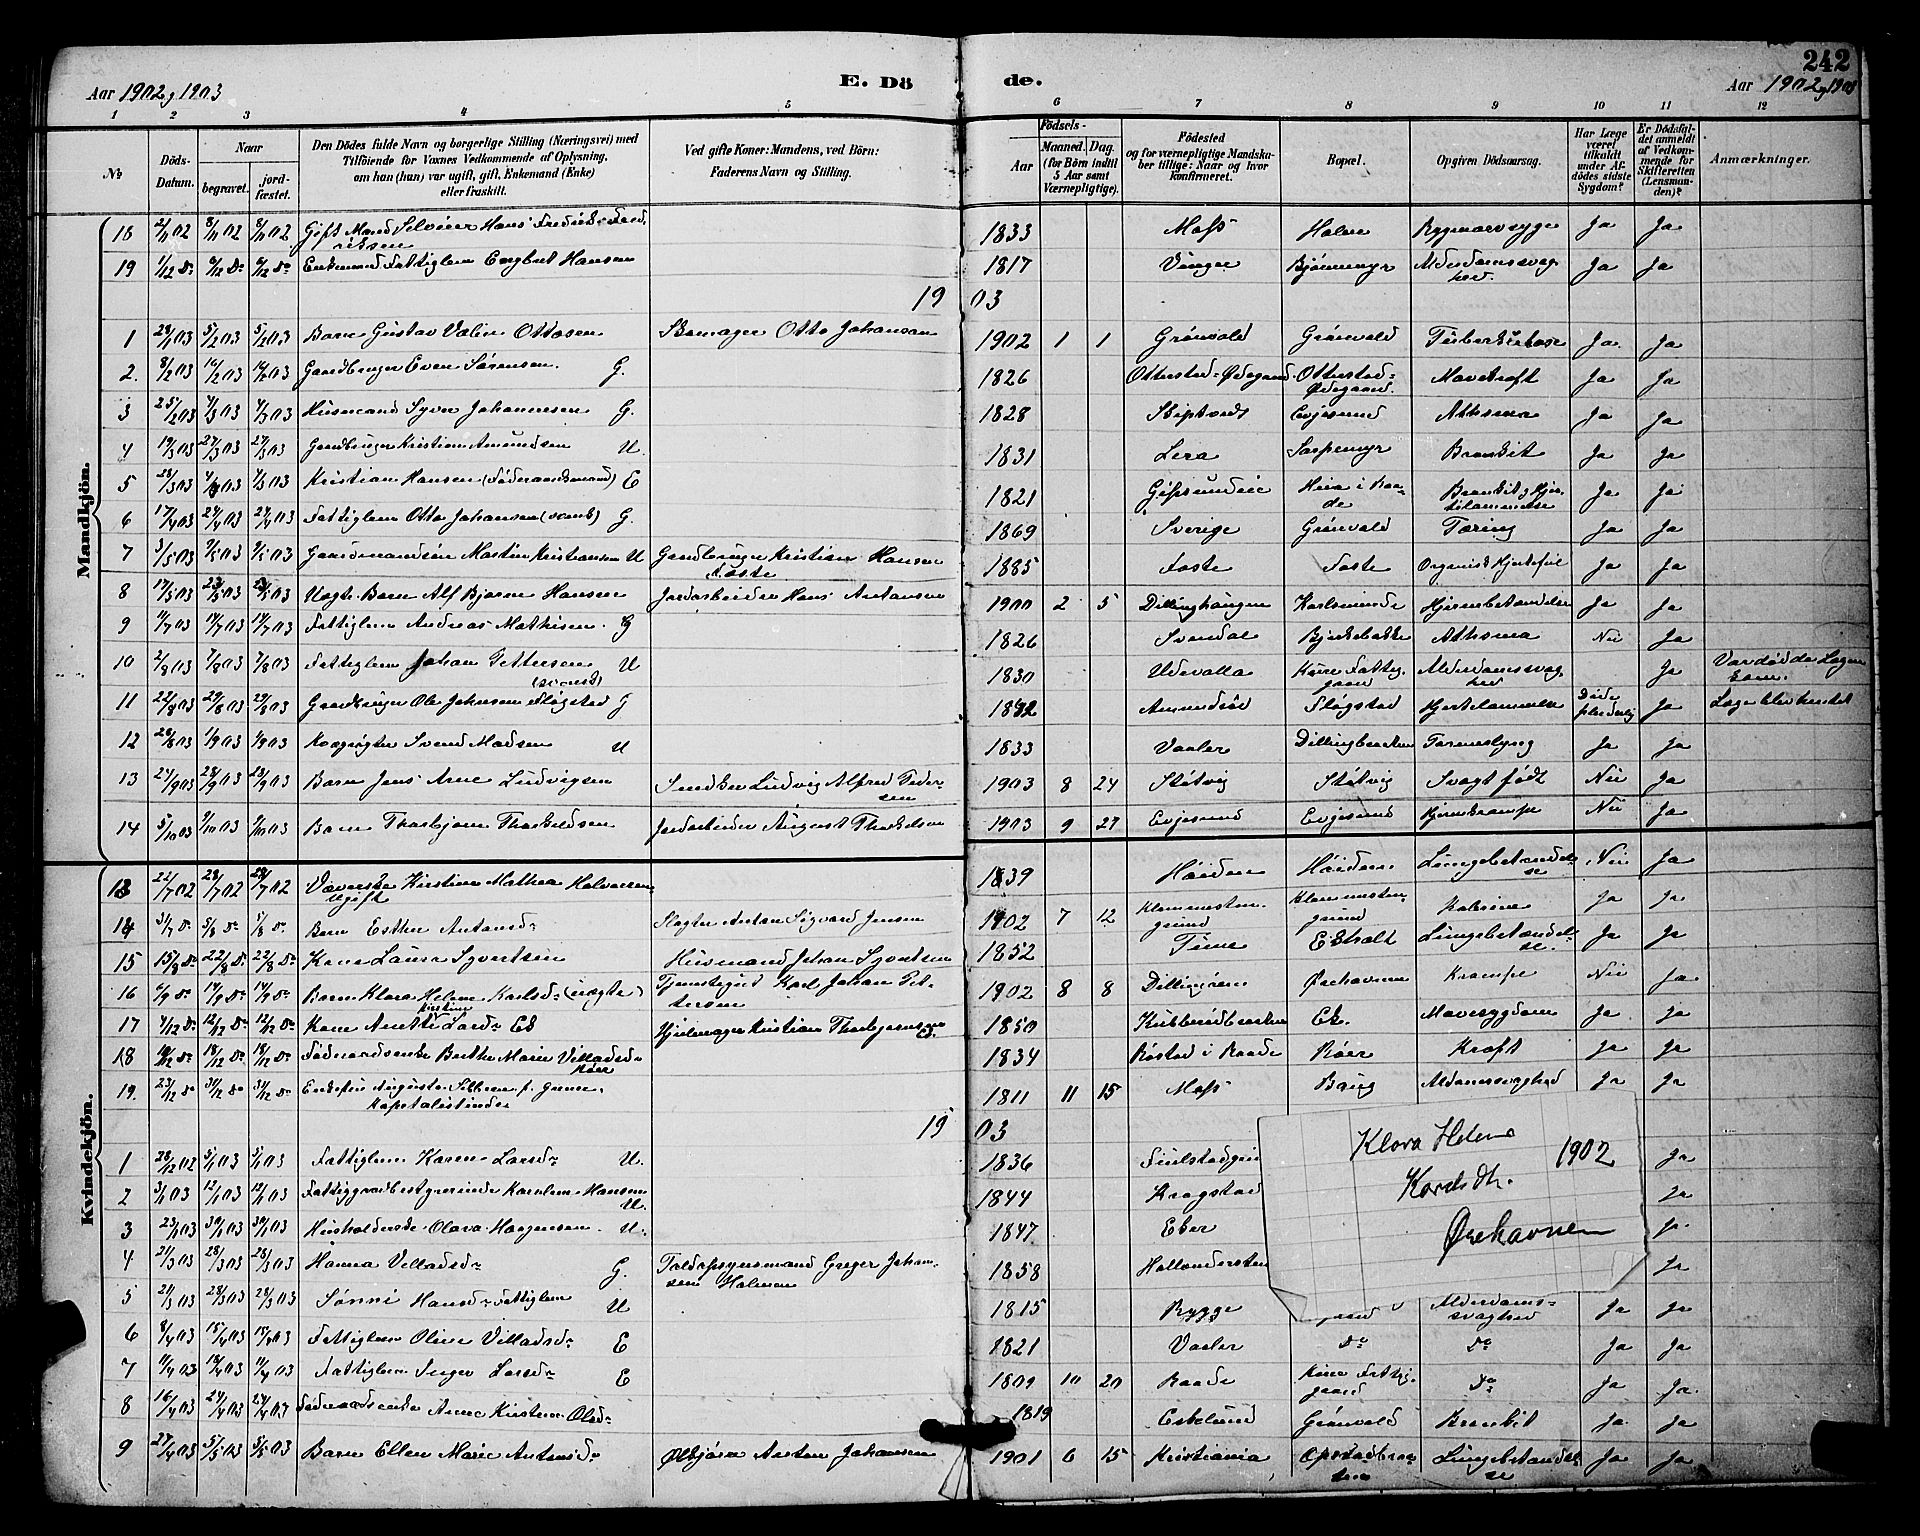 242
Aar 1902 og 1903
E. Dö
de.
Aar 1902 og 1903
1 2 3 4 5 6 7 8 9 10 11 12
№
Döds-Datum.
Naar
begravet.
jord-fæstet.
Den Dödes fulde Navn og borgerlige Stilling (Næringsvei) med
Tilföiende för Voxnes Vedkommende af Oplysning,
om han (hun) var ugift, gift, Enkemand (Enke)
eller fraskilt.
Ved gifte Koner: Mandens, ved Börn:
Faderens Navn og Stilling.
Födsels-
Aar
Maaned. Dag.
(for Börn indtil
5 Aar samt
Værnepligtige).
Födested
og for værnepligtige Mandska-
ber tillige: Naar og hvor
konfirmeret.
Bopæl.
Opgiven Dödsaarsag.
Har Læge
været
tilkaldt
under Af-
dödes sidste
Sygdom?
Er Dödsfal-
det anmeldt
af Vedkom-
mende for
Skifteretten
(Lensman-
den)?
Anmærkninger.
Mandkjön.
18 2/11 02 8/11 02 8/11 02 Gift Mand Hans Fredrik Fred
riksen 1833 Moss Holen Rygmarvsyge Ja Ja
19 1/12 do 9/12 do 9/12 do Enkemand Fattiglem Engbret Hansen 1817 Vinger Bjønnemyr Alderdomssvag-
hed. Ja Ja
19 03
1 28/1 03 5/2 03 5/2 03 Barn Gustav Valin Ottosen Skomager Otto Johansen 1902 1 1 Grønvold Grønvold Tuberkulose Ja. Ja
2. 8/2 03 16/2 03 16/2 03 Gaardbruger Even Sørensen. G. 1826 Otterstad-Ødegaard Otterstad-
Ødegaard. Mavekræft Ja Ja
3 25/2 03 4/3 03 4/3 03 Husmand Syver Johannesen G. 1828 Skiptvedt Evjesund Athsma Ja Ja
4 19/3 03 27/3 03 27/3 03 Gaardbruger Kristian Amundsen U. 1831 Lera Sarpemyr Bronkit Ja Ja
5 28/3 03 03 03 Kristian Hansen (Føderaadsmand) E 1821 Gipsund i Raa-
de Bronkit & Hjer-
telammelse Ja Ja
6 17/4 03 24/4 03 24/4 03 Fattiglem Otto Johansen (svensk) G. 1869 Sverige Grønvold Tæring Ja Ja
7 3/5 03 9/5 03 9/5 03 Gaardmandsøn Martin Kristiansen U Gaardbruger Kristian Hansen
Foste 1885 Foste Foste Organisk Hjertefeil Ja Ja
8 17/5 03 23/5 03 23/5 03 Uægte Barn Alf Bjarne Hansen Jordarbeider Hans Antonsen 1900 2 5 Dillinghaugen Karlsminde Hjernebetændelse Ja Ja
9 11/7 03 17/7 03 17/7 03 Fattiglem Andreas Mathisen. G 1826 Svendal Bjerkebakken Athsma Nei Ja
10 2/8 03 7/8 03 7/8 03 Fattiglem Johan Pettersen U
(svensk) 1830 Udevalla Kure Fattig-
gaard Alderdomssvag-
hed Ja
11 22/8 03 29/8 03 29/8 03 Gaardbruger Ole Johnsen Fløgstad G 1842 Amundrød Fløgstad Hjertelammelse Døde
pludselig Ja Læge blev hentet
12 28/8 03 1/9 03 1/9 03 Svend Madsen U 1833 Vaaler Dillingbraaten Tarmeslyng Ja Ja
13 24/9 03 28/9 03 28/9 03 Barn Jens Arne Ludvigsen Snedker Ludvig Alfred Peder-
sen 1903 8 24 Støtvig Støtvig Svagt født Nei Ja
14 5/10 03 9/10 03 9/10 03 Barn Thorbjørn Thorkildsen Jordarbeider August Thorkelsen 1903 9 27 Evjesund Evjesund Hjernekrampe Nei Ja
Kvindekjön.
13 22/7 02 28/7 02 28/7 02 Væverske Kirstine Mathea Halvorsen
ugift 1839 Høiden Høiden Lungebetændel-
se Nei Ja
14 31/7 do 5/8 do 5/8 do Barn Esther Antonsdr Slagter Anton Sigvard Jensen 1902 7 12 Klommesten-
grund Klommesten-
grund Kolerine Ja Ja
15 15/8 do 22/8 do 22/8 do Kone Laura Syvertsen Husmand Johan Syvertsen 1852 Tune Ekholt Lungebetændel-
se. Ja Ja
16 9/9 do 14/9 do 14/9 do Barn Klara Helene Karlsd. (uægte) Tjenestegut Karl Johan Pet-
tersen 1902 8 8 Dillingøren Ørehavnen Krampe Nei Ja
17 4/12 do 12/12 do 12/12 do Kone Anette Kirstine Larsdr Ek Hjulmager Kristian Thorbjørnsen
Ek. 1850 Kubberødbraaten Ek. Mavesygdom Ja Ja
18 10/12 do 18/12 do 18/12 do Føderaadsenke Berthe Marie Villadsdr
Røer 1834 Røstad i Raade Røer Kræft Ja Ja
19. 23/12 do 31/12 do 31/12 do Enkefru Augusta
1811 11 15 Moss Bang Alderdomssvaghed Ja Ja
19 03
1 28/12 02 5/1 03 5/1 03 Fattiglem Karen Larsdr U. 1836 Ja
2 3/1 03 12/1 03 12/1 03 Fattiggaardbestyrerinde Karoline Hansen
U. 1844 Kragstad Ja
3 23/1 03 30/1 03 30/1 03 Husholderske Olava Haagensen. U. 1847 Eker Ja.
4 21/3 03 28/3 03 28/3 03 Hanna Villadsdr G. Toldopsynsmand Greger Johan-
sen Holmen 1858 Hollendersten Ja
5 21/3 03 28/3 03 28/3 03 Sønni Hansdr Fattiglem U 1815 Rygge gaard Alderdoms-
svaghed Ja Ja
6 8/4 03 15/4 03 15/4 03 Fattiglem Oline Villadsdr E 1821 Vaaler do do Ja Ja
7 11/4 03 18/4 03 18/4 03 Fattiglem Inger Larsdr E 1809 10 20 Raade Kure Fattig-
gaard do Ja Ja.
8 16/4 03 24/4 03 24/4 03 Føderaadsenke Anne Kirstine Olsdr 1819 Eskelund Grønvold Bronkit Ja Ja
9 27/4 03 5/5 03 5/5 03 Barn Ellen Marie Antonsdr Ølkjører Anton Johansen 1901 6 15 Kristiania Opstadbraa-
ten Lungebetændel-
se Ja Ja
Klara Helene 1902
Karlsdtr.
Ørehavnen